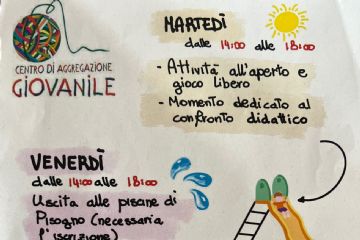 CENTRO DI AGGREGAZIONE
GIOVANILE
MARTEDÌ
dalle 14:00 alle 18:00
- Attività all'aperto e
gioco libero
- Momento dedicato al
confronto didattico
VENERDÌ
dalle 14:00 alle 18:00
Uscita alle piscine di
Pisogno (necessaria
l'iscrizione)